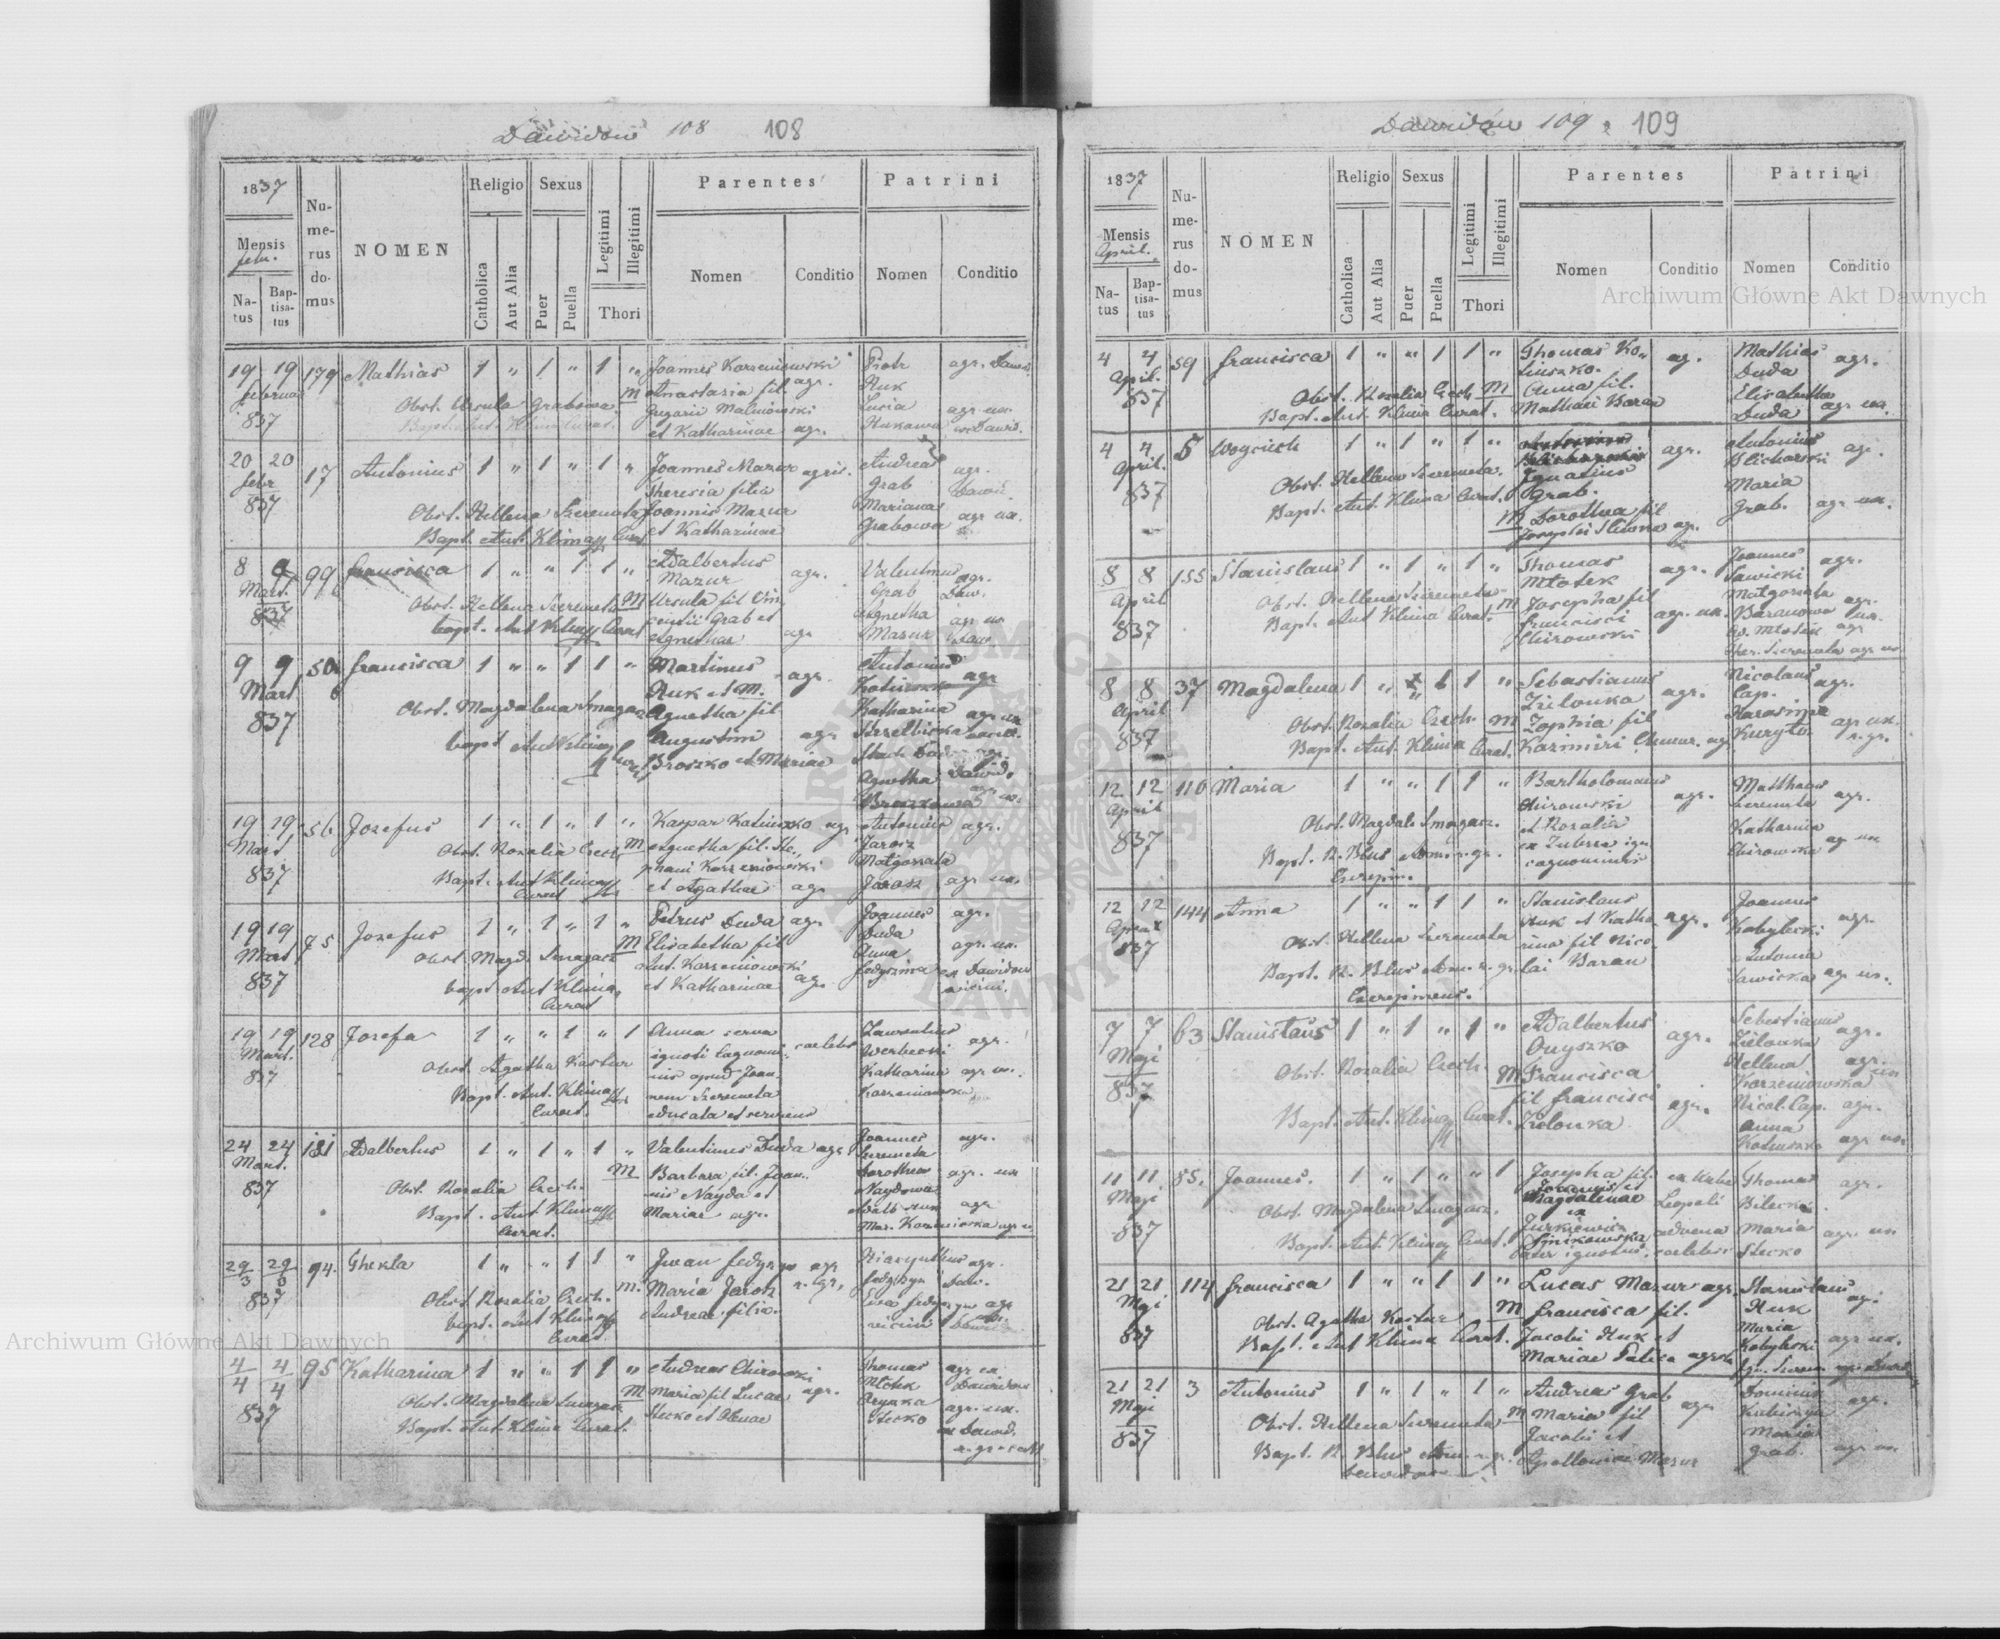 Dawidów 108 108
1837
Mensis
febr.
Natus
Baptisatus
Numerus domus
NOMEN
Religio
Catholica
Aut Alia
Sexus
Puer
Puella
Legitimi
Illegitimi
Thori
Parentes
Nomen
Conditio
Patrini
Nomen
Conditio
19 19 179 Mathias 1 " 1 " 1 " Joannes Korzeniowski agr. Piotr agr. Dawid.
februar M Anastasia fil. Huk
837 Obst. Ursula Grabowa Malinowski Lucia agr. ux.
Bapt. Ant. Klima Curat. et Katharinae agr. Hukowa ex Dawid.
20 20 17 Antonius 1 " 1 " 1 " Joannes Mazur agric. Andreas agr.
febr Theresia filia Grab Dawid.
837 Obst. Hellena Szeremeta Joannis Mazur Mariana
Bapt. Ant. Klima Curat et Katharinae Grabowa agr ux.
8 9 99 francisca 1 " " 1 1 " Adalbertus Valentinus agr.
Mart. Mazur agr. Grab Daw.
837 Obst. Hellena Szeremeta M Ursula fil Vin, Agnetha agr ux
bapt. Ant Klima Curat centii Grab et Mazur Daw.
Agnethae agr
9 9 50 francisca 1 " " 1 1 " Martinus agr. Antonius
Mart Huk et M. Katiuszka agr
837 Obst. Magdalena Smagacz Agnetha fil Katharina agr ux
bapt Ant Klima Curat Augustini agr Strzelbicka
Broszko et Mariae
Agnetha Dawid.
Broszkowa agr ux.
19 19 56 Jozefus 1 " 1 " 1 " Kaspar Katiuszko agr Antonius agr.
Mart Obst Rozalia Czech M Agnetha fil. Ste, Jarosz
837 Bapt. Ant Klima phani Korzeniowski Małgorzata
Curat et Agathae agr Jarosz agr ux.
19 19 75 Jozefus 1 " 1 " 1 " Petrus Duda agr Joannes agr.
Mart M Elisabetha fil Duda
837 Obst Magd. Smagacz Ant. Korzeniowski Anna agr. ux.
bapt Ant Klima, et Katharinae agr fedyszina ex Dawidow
Curat
19 19 128 Josefa 1 " " 1 " 1 Anna serva Laurentius
Mart. ignoti cagnomi- caelebs Werbecki agr.
837 Obst. Agatha Kastur nis apud Joan, Katharina agr ux.
Bapt. Ant. Klima nem Szeremeta Korzeniowska
Curat. educata et serviens
24 24 121 Adalbertus 1 " 1 " 1 " Valentinus Duda agr Joannes agr.
Mart. M Barbara fil. Joan- Szeremeta
837 Obst. Rozalia Czech. nis Nayda et Dorothea agr. ux
Bapt. Ant Klima Mariae agr. Naydowa
Curat. Adalb Huk agr
Mar. Korzeniowska agr u
29/3 29/3 94. Thekla 1 " " 1 1 " Jwan fedyszyn agr Hiacynthus agr.
837 m. Maria Jarosz r. gr, fedyszyn Daw.
Obst Rozalia Czech. Andreae filia. Ewa fedyszyn agr
bapt. Ant Klima
Curat.
4/4 4/4 95 Katharina 1 " " 1 1 " Andreas Chirowski Thomas agr ex
837 Obst. Magdalena Smagacz M Maria fil Lucae agr. Młotek Dawidow
Bapt. Ant. Klima Curat. Stecko et Olenae Orynka agr. ux.
Stecko ex Dawid.
Dawidów 109 109
1837
Mensis
April.
Natus
Baptisatus
Numerus domus
NOMEN
Religio
Catholica
Aut Alia
Sexus
Puer
Puella
Legitimi
Illegitimi
Thori
Parentes
Nomen
Conditio
Patrini
Nomen
Conditio
4 4 59 francisca 1 " " 1 1 " Thomas Ko, ag. Mathias agr.
April. Duda
837 Obst. Rozalia Czech M Anna fil. Elisabetha
Bapt. Ant. Klima Curat. Mathaei Baran Duda agr ux.
4 4 5 Woyciech 1 " 1 " 1 " agr. Antonius agr.
April. Ignatius Blicharski
837 Obst. Hellena Szeremeta. Grab. Maria
Bapt. Ant. Klima Curat. M Dorothea fil Grab. agr ux.
Josephi Sliwka agr.
8 8 155 Stanislaus 1 " 1 " 1 " Thomas agr. Joannes agr.
April Młotek Sawicki
837 Obst. Hellena Szeremeta M Josepha fil Małgorzata agr.
Bapt. Ant Klima Curat. francisci agr. ux. Baranowa ux.
Chirowski Młotek agr
Szeremeta agr ux
8 8 37 Magdalena 1 " " 1 1 " Sebastianus agr. Nicolaus agr.
April Zielonka Cap.
837 Obst. Rozalia Czech. M Zophia fil Harasima agr ux.
Bapt. Ant. Klima Curat. Kazimiri Chmur. agr Kuryło r. gr.
12 12 110 Maria 1 " " 1 1 " Bartholomaeus Matthaeus
April Chirowski agr. Szeremeta agr.
837 Obst. Magdal. Smagacz. et Rozalia Katharina
Bapt. R. Blus Adm. r. gr. ex Zubrza ign. Chirowska ag ux
cagnominis
12 12 144 Anna 1 " " 1 1 " Stanislaus Joannes
April Huk et Katha agr. Kobylecki agr.
837 Obst. Hellena Szeremeta rina fil Nico, Antonia
Bapt. R. Blus Adm. r. gr. lai Baran Sawicka agr ux.
7 7 63 Stanislaus 1 " 1 " 1 " Adalbertus Sebestianus agr.
Maji Onyszko agr. Zielonka
837 Obst. Rozalia Czech. M Francisca Hellena agr.
Bapt. Ant. Klima Curat. fil francisci agr. Korzeniowska ux
Zielonka Nicol. Cap. agr.
Anna
Katiuszko agr ux
11 11 55. Joannes. 1 " 1 " " 1 Josepha fil. ex Urbe Thomas agr.
Maji Joannis et Leopoli Bilecki
837 Obst. Magdalena Smagacz. Magdalenae advena Maria agr. ux
Bapt. Ant. Klima Curat. Jurkiewicz caelebs Stecko
Pater ignotus.
21 21 114 francisca 1 " " 1 1 " Lucas Mazur agr. Stanislaus agr.
Maji M francisca fil. Huk
837 Obst. Agatha Kastur Jacobi Huk et Maria
Bapt. Ant Klima Curat. Mariae agr. Kobylecki agr ux.
21 21 3 Antonius 1 " 1 " 1 " Andreas Grab Dominik
Maji M Maria fil agr agr.
837 Obst. Hellena Szeremeta Jacobi et Maria
Bapt. R. Blus Adm. r. gr. Apolloniae Mazur Grab. agr ux